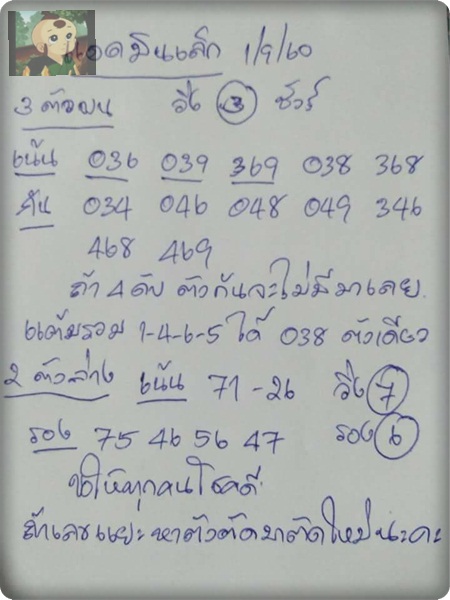 แอดมินเล็ก 1/9/60
3 ตัวบน วิ่ง 3 ชัวร์
เน้น 036 039 369 038 368
กัน 034 046 048 049 346
468 469
ถ้า 4 ดับ ตัวกันจะไม่มีมาเลย.
แต้มรวม 1-4-6-5 ได้ 038 ตัวเดียว
2 ตัวล่าง เน้น 71-26 วิ่ง 7
รอง 75 46 56 47 รอง 6
ขอให้ทุกคนโชคดี
ถ้าเลขเยอะหาตัวตัดมาตัดใหม่นะคะ